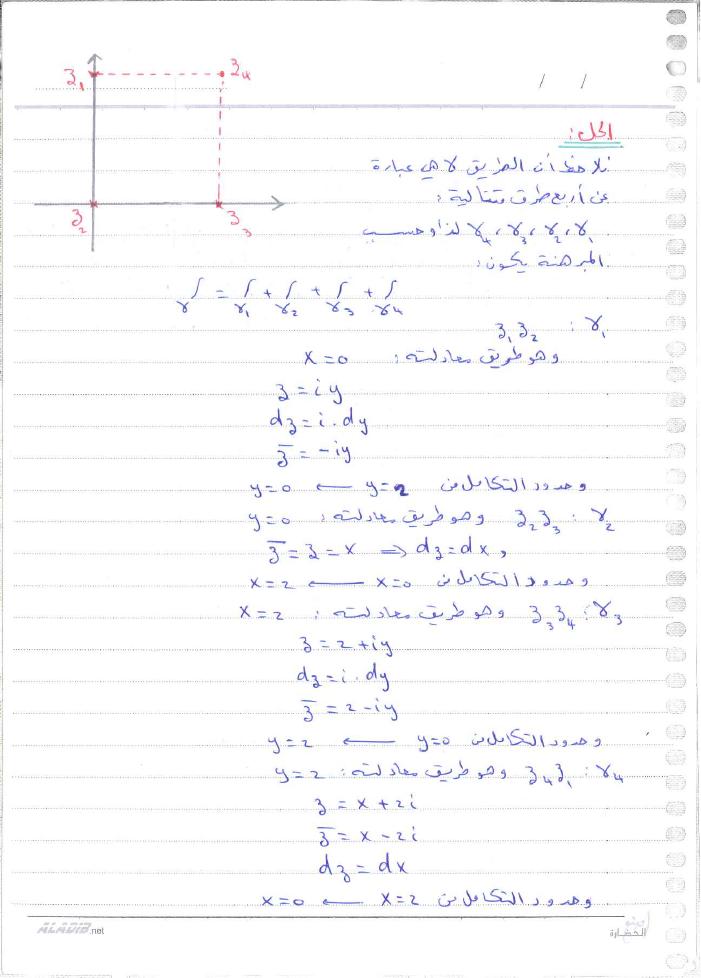 z₁ z₄
z₂ z₃
/ /
الحل:
نلاحظ أن الطريق γ هي عبارة
عن أربع طرق متتالية:
γ₁، γ₂، γ₃، γ₄ لذا وحسب
المبرهنة يكون:
∫γ = ∫γ₁ + ∫γ₂ + ∫γ₃ + ∫γ₄
γ₁ : z₁z₂
وهو طريق معادلته: x=0
z = iy
dz = i·dy
z̅ = -iy
وحدود التكامل من y=2 ⟵ y=0
γ₂ : z₂z₃ وهو طريق معادلته: y=0
z̅ = z = x ⟹ dz = dx,
وحدود التكامل من x=0 ⟵ x=2
γ₃ : z₃z₄ وهو طريق معادلته: x=2
z = 2+iy
dz = i·dy
z̅ = 2-iy
وحدود التكامل من y=0 ⟵ y=2
γ₄ : z₄z₁ وهو طريق معادلته: y=2
z = x+2i
z̅ = x-2i
dz = dx
وحدود التكامل من x=2 ⟵ x=0
ALADIB.net
الحضارة